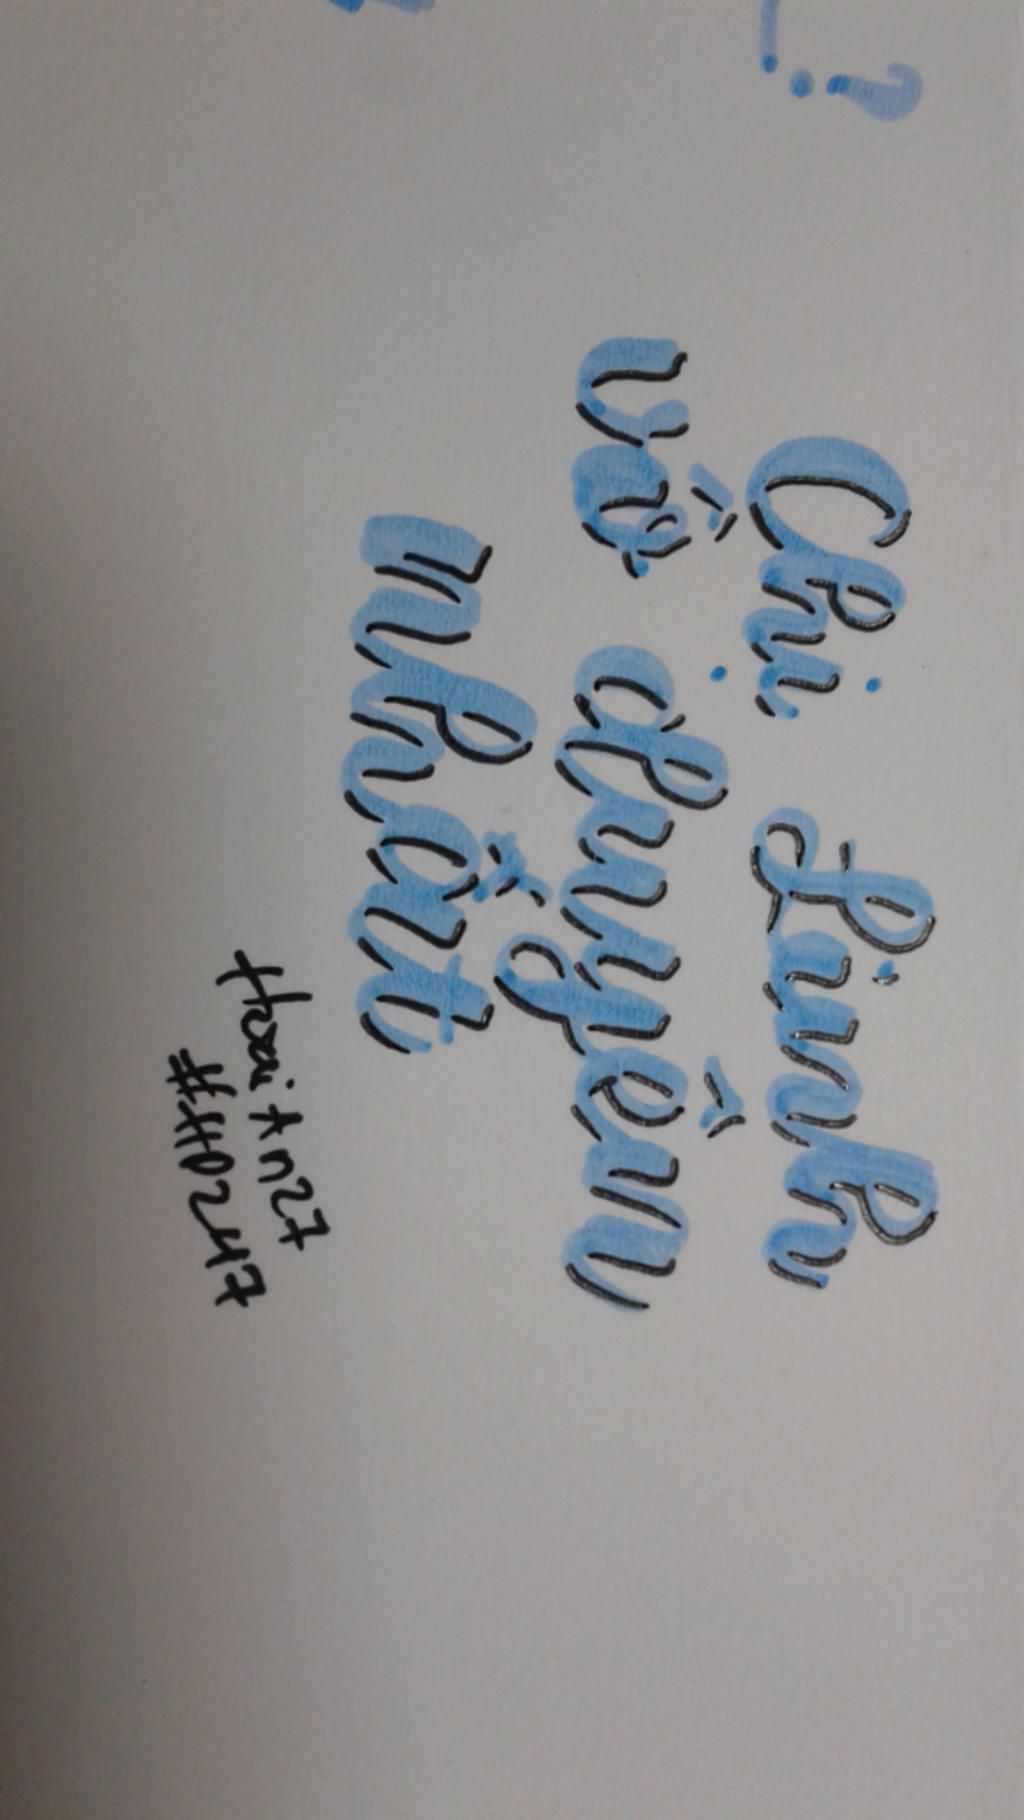 ?
Chị Linh
vô duyên
nhất
Hoai An27
#HD247